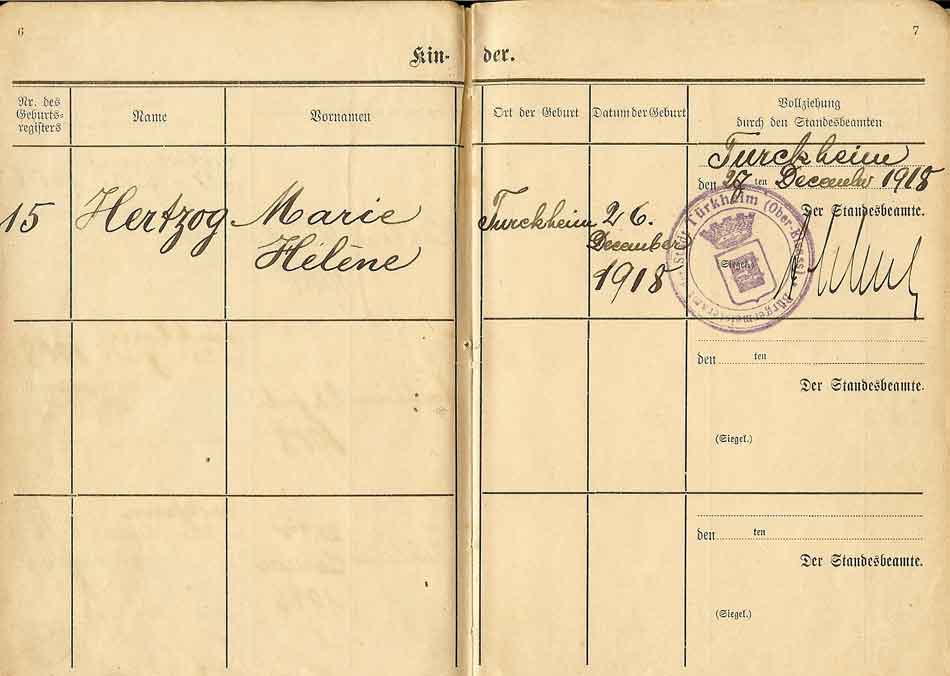 6
7
Kin- der.
Nr. des
Geburts-
registers
Name
Vornamen
Ort der Geburt
Datum der Geburt
Vollziehung
durch den Standesbeamten
Turckheim
den 27 ten December 1918
Der Standesbeamte.
15
Hertzog
Marie
Helène
Turckheim
26.
December
1918
Stadt Türkheim (Ober-Elsass)
Bürgermeisteramt
(Siegel.)
den ten
Der Standesbeamte.
(Siegel.)
den ten
Der Standesbeamte.
(Siegel.)